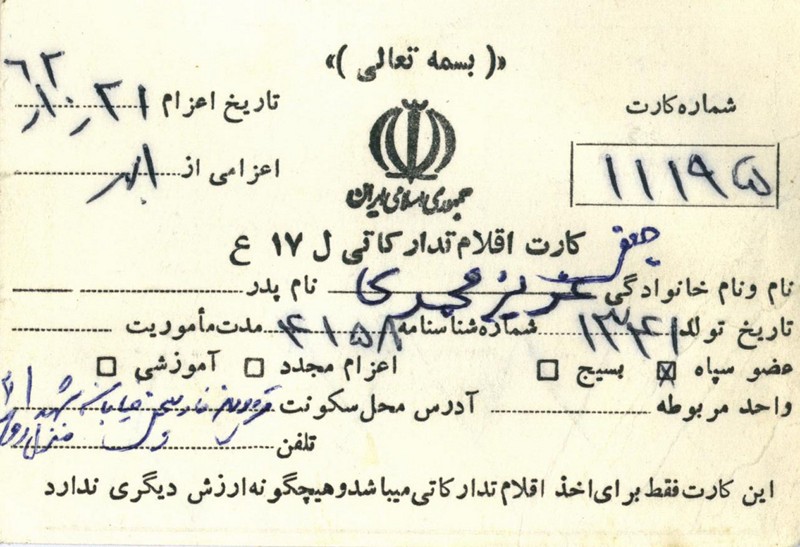 «( بسمه تعالی )»
شماره کارت
تاریخ اعزام ۲۱ ر۱۰ر ۶۲
۱۱۱۹۵
اعزامی از ابهر
جمهوری اسلامی ایران
کارت اقلام تدارکاتی ل ۱۷ ع
نام و نام خانوادگی جعفر عزیز محمدی نام پدر
تاریخ تولد ۱۳۴۱ شماره شناسنامه مدت مأموریت
عضو سپاه بسیج اعزام مجدد آموزشی
واحد مربوطه آدرس محل سکونت خیابان
تلفن منزل
این کارت فقط برای اخذ اقلام تدارکاتی میباشد و هیچگونه ارزش دیگری ندارد